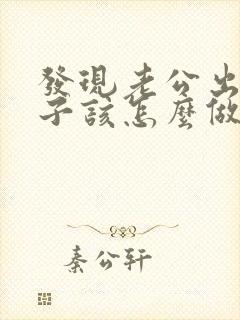 發現老公出
子該怎麼做
秦公軒